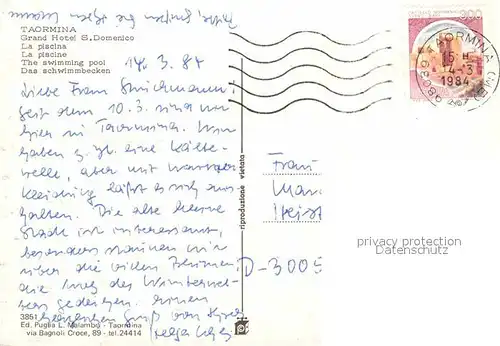 TAORMINA
Grand Hotel S. Domenico
La piscina
La piscine
The swimming pool
Das schwimmbecken
14. 3. 84
Liebe Frau
seit dem 10. 3. sind wir
hier in Taormina. Wir
haben z. Zt. eine Kälte-
welle, aber mit warmer
Kleidung läßt es sich aus-
halten. Die alte kleine
Stadt ist interessant,
besonders staunen wir
über die vielen Blumen,
die trotz des Winterwet-
ters gedeihen. Einen
Gruß von
300
98039 TAORMINA
15-H
14-3
1984
riproduzione vietata
Frau
D-3005
privacy protection
Datenschutz
3851
Ed. Puglia L. Malambo - Taormina
via Bagnoli Croce, 89 - tel. 24414